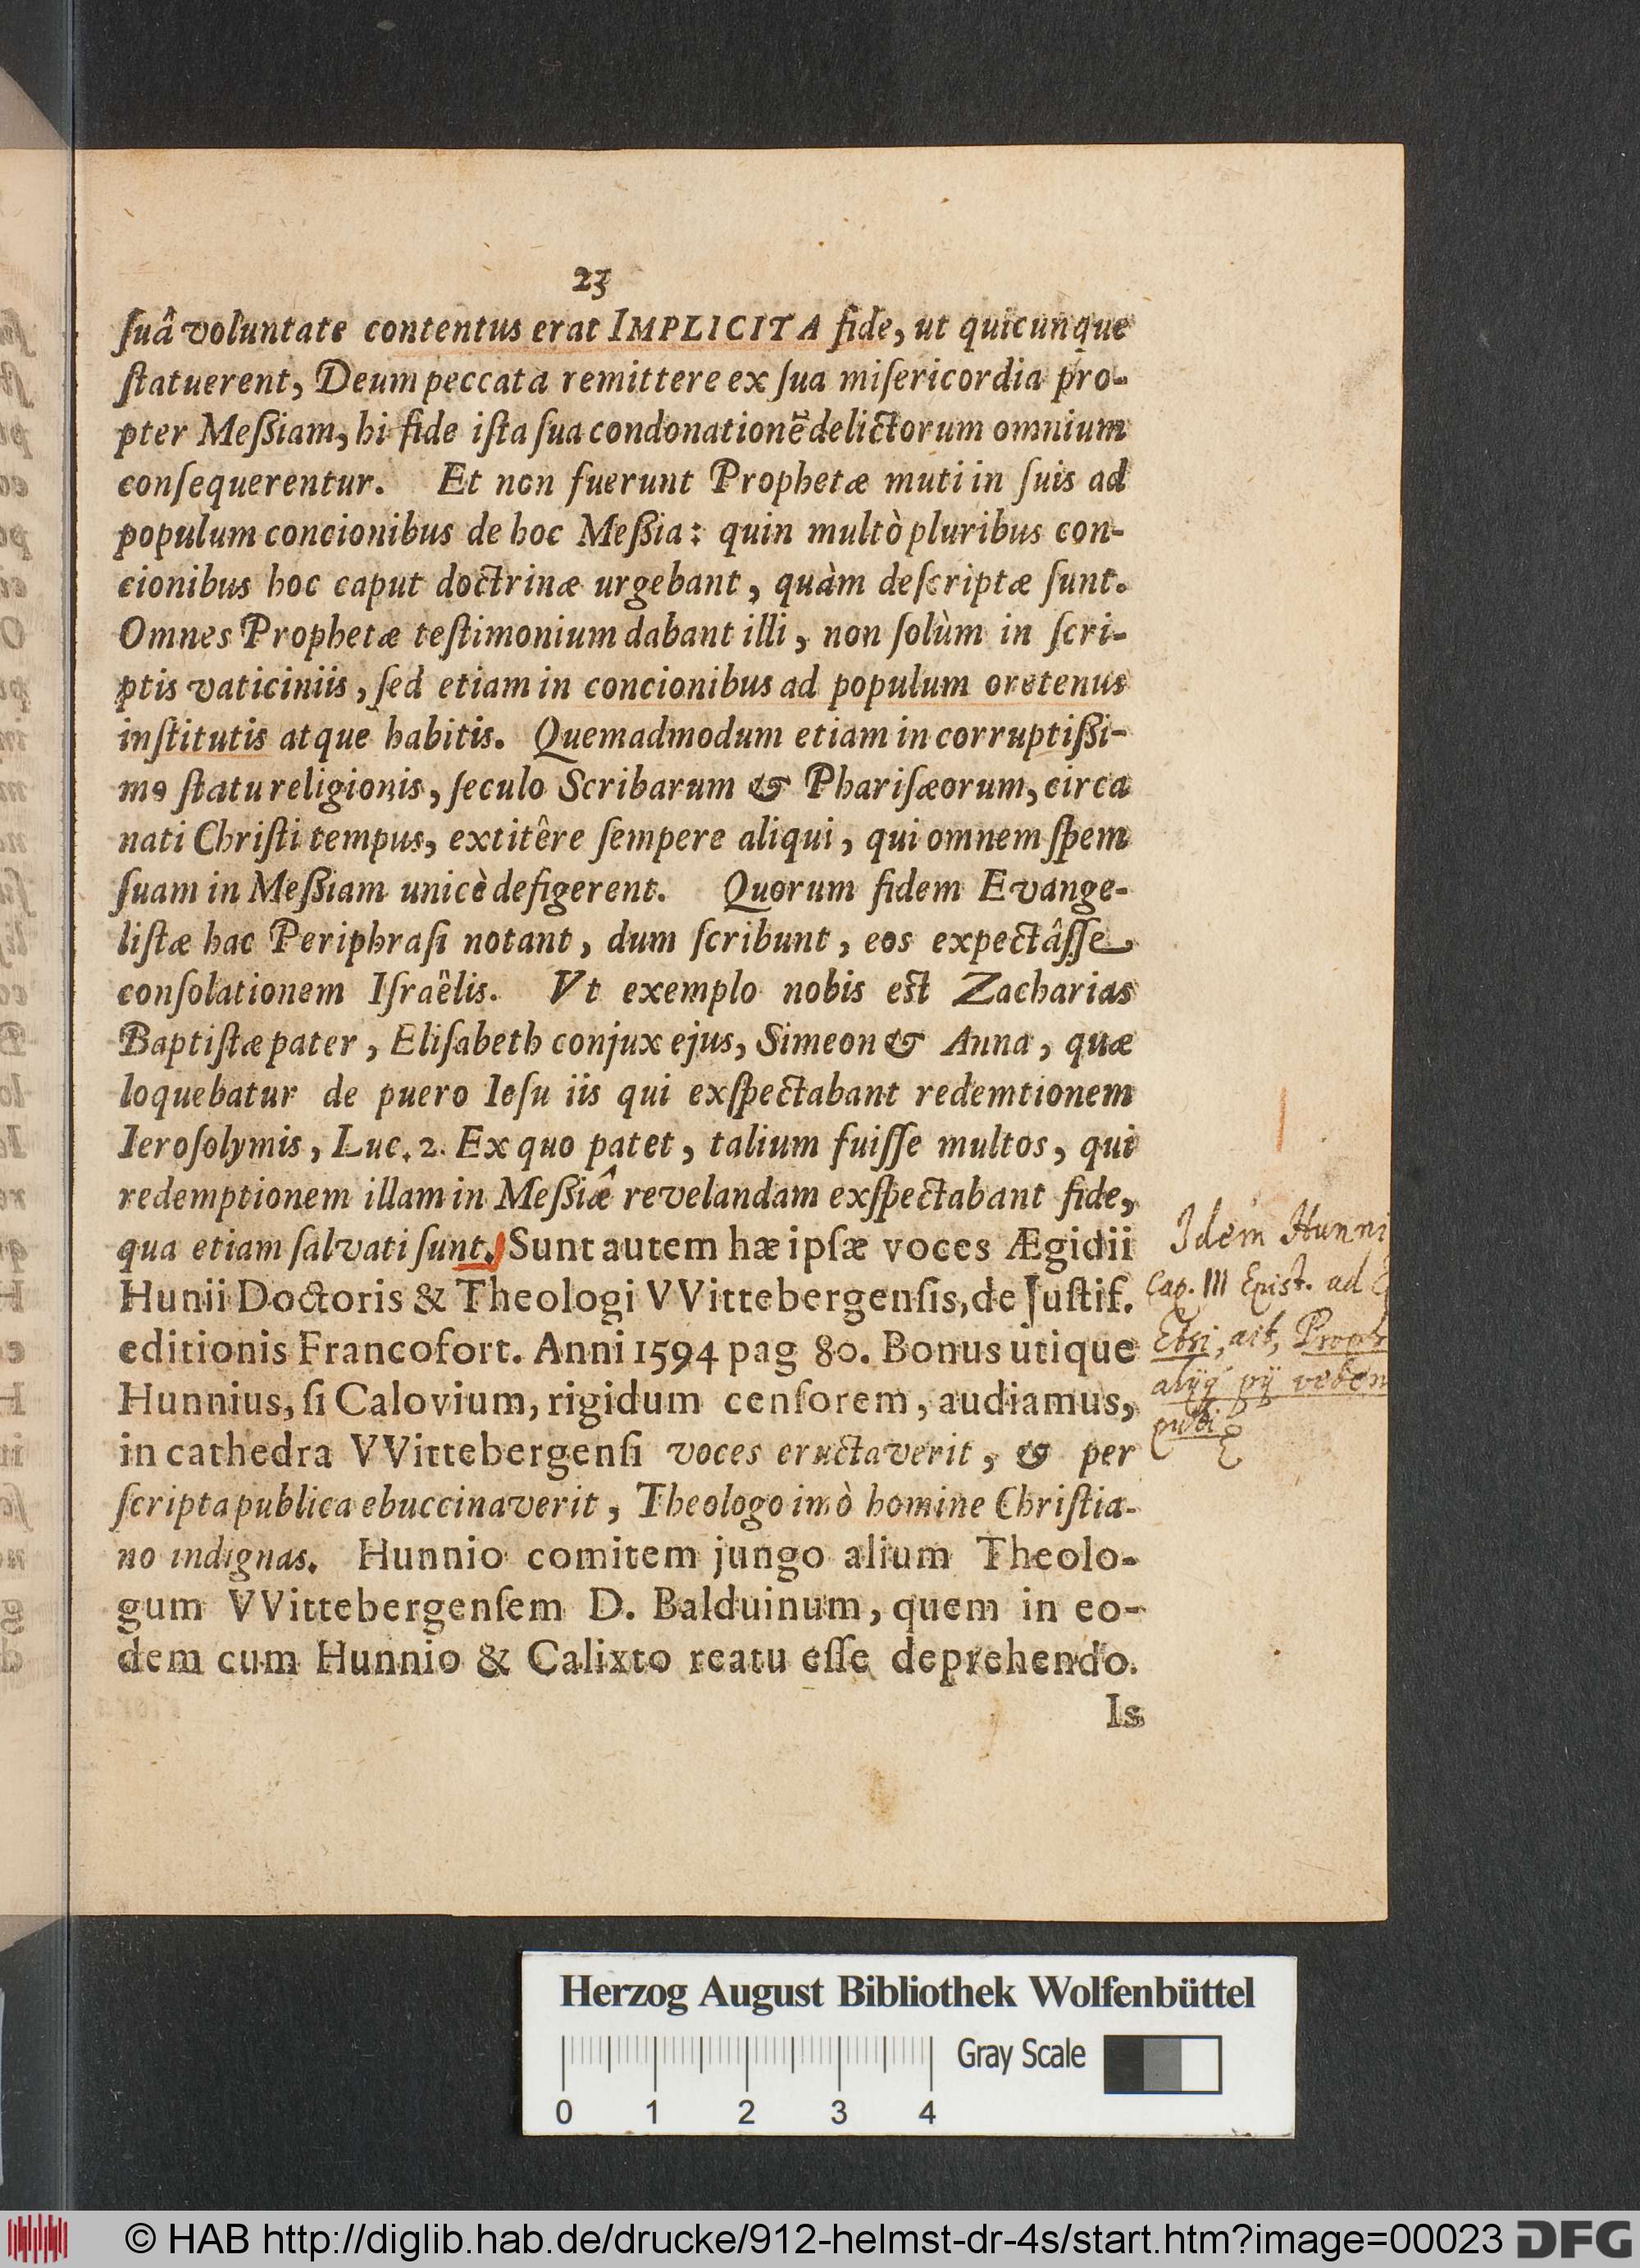 23
ſuâ voluntate contentus erat IMPLICITA fide, ut quicunque
ſtatuerent, Deum peccata remittere ex ſua miſericordia pro-
pter Meßiam, hi fide iſta ſua condonationẽ delictorum omnium
conſequerentur. Et non fuerunt Prophetæ muti in ſuis ad
populum concionibus de hoc Meßia: quin multò pluribus con-
cionibus hoc caput doctrinæ urgebant, quàm deſcriptæ ſunt.
Omnes Prophetæ teſtimonium dabant illi, non ſolùm in ſcri-
ptis vaticiniis, ſed etiam in concionibus ad populum oretenus
inſtitutis atque habitis. Quemadmodum etiam in corruptißi-
mo ſtatu religionis, ſeculo Scribarum & Phariſæorum, circa
nati Chriſti tempus, extitêre ſempere aliqui, qui omnem ſpem
ſuam in Meßiam unicè defigerent. Quorum fidem Evange-
liſtæ hac Periphraſi notant, dum ſcribunt, eos expectâſſe
conſolationem Iſraëlis. Vt exemplo nobis est Zacharias
Baptiſtæ pater, Eliſabeth conjux ejus, Simeon & Anna, quæ
loquebatur de puero Ieſu iis qui exſpectabant redemtionem
Ieroſolymis, Luc. 2. Ex quo patet, talium fuiſſe multos, qui
redemptionem illam in Meßiæ̂ revelandam exſpectabant fide,
qua etiam ſalvati ſunt. Sunt autem hæ ipſæ voces Ægidii
Hunii Doctoris & Theologi VVittebergenſis, de Juſtif.
editionis Francofort. Anni 1594 pag 80. Bonus utique
Hunnius, ſi Calovium, rigidum cenſorem, audiamus,
in cathedra VVittebergenſi voces eructaverit, & per
ſcripta publica ebuccinaverit, Theologo imò homine Chriſtia-
no indignas. Hunnio comitem jungo alium Theolo-
gum VVittebergenſem D. Balduinum, quem in eo-
dem cum Hunnio & Calixto reatu eſſe deprehendo.
Is
Idem Hunni
Cap. III Epist. ad
Etsi, ait, Proph
Herzog August Bibliothek Wolfenbüttel
Gray Scale
0 1 2 3 4
© HAB http://diglib.hab.de/drucke/912-helmst-dr-4s/start.htm?image=00023 DFG